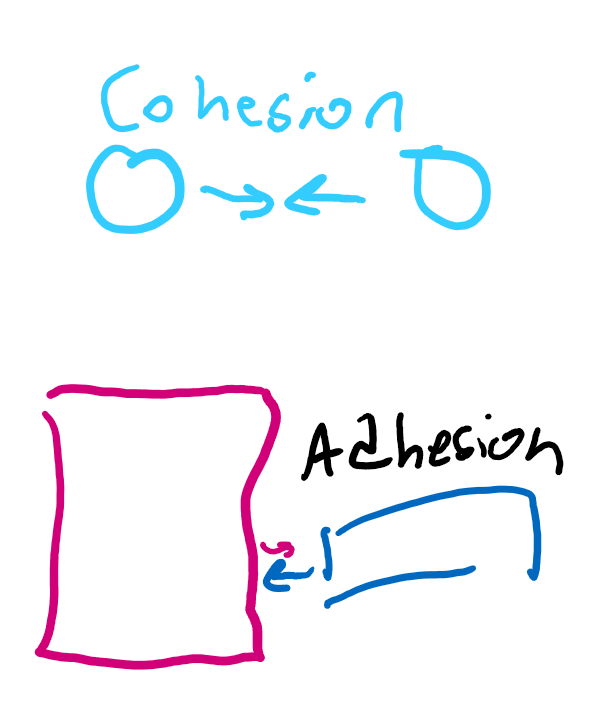 Cohesion
Adhesion